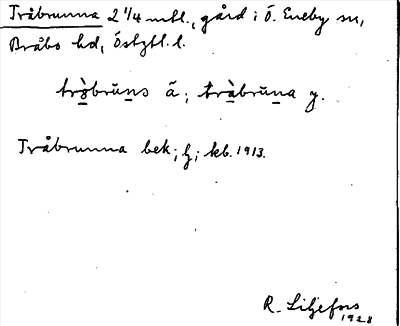 Tråbrunna 2 1/4 mtl., gård i Ö. Eneby sn,
Bråbo hd, Östgtl. l.
tròbrŭns ä; tràbrŭna y.
Tråbrunna bek; f; kb. 1913.
R. Liljefors
1928